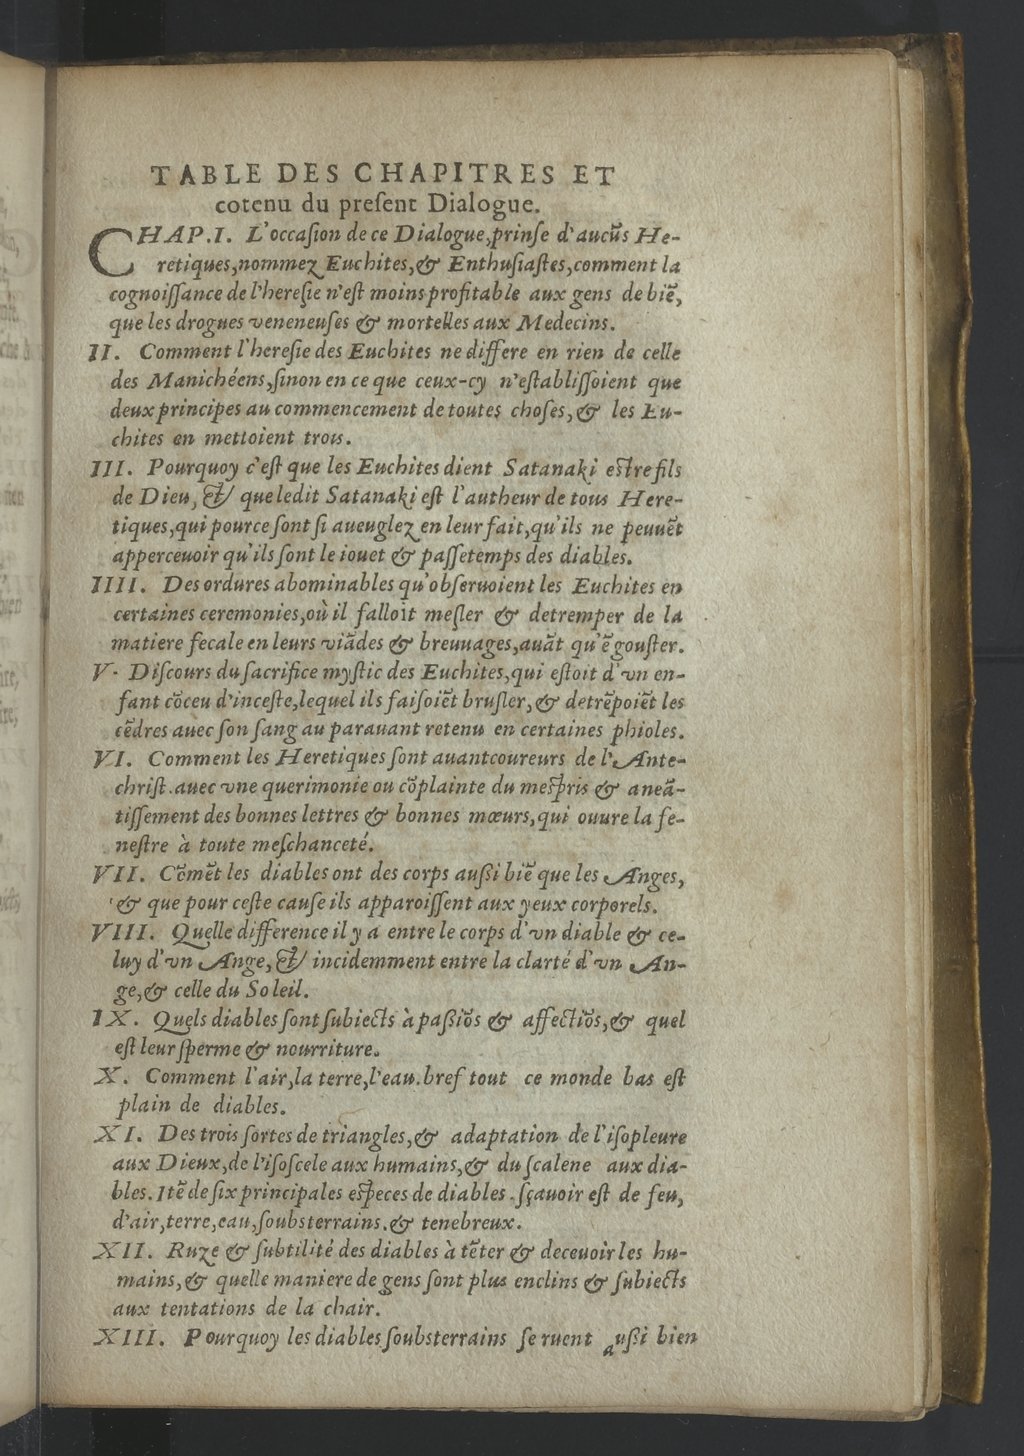 TABLE DES CHAPITRES ET
cotenu du preſent Dialogue.
CHAP.I. L'occaſion de ce Dialogue,prinſe d'aucũs He-
retiques,nommez Euchites,& Enthuſiaſtes,comment la
cognoiſſance de l'hereſie n'eſt moins profitable aux gens de biẽ,
que les drogues veneneuſes & mortelles aux Medecins.
II. Comment l'hereſie des Euchites ne differe en rien de celle
des Manichéens,ſinon en ce que ceux-cy n'eſtabliſſoient que
deux principes au commencement de toutes choſes,& les Eu-
chites en mettoient trois.
III. Pourquoy c'eſt que les Euchites dient Satanaki eſtre fils
de Dieu, & que ledit Satanaki eſt l'autheur de tous Here-
tiques,qui pource ſont ſi aueuglez en leur fait,qu'ils ne peuuẽt
apperceuoir qu'ils ſont le iouet & paſſetemps des diables.
IIII. Des ordures abominables qu'obſeruoient les Euchites en
certaines ceremonies,où il falloit meſler & detremper de la
matiere fecale en leurs viãdes & breuuages,auãt qu'ẽ gouſter.
V. Diſcours du ſacrifice myſtic des Euchites,qui eſtoit d'vn en-
fant cõceu d'inceſte,lequel ils faiſoiẽt bruſler,& detrẽpoiẽt les
cẽdres auec ſon ſang au parauant retenu en certaines phioles.
VI. Comment les Heretiques ſont auantcoureurs de l'Ante-
chriſt.auec vne querimonie ou cõplainte du meſpris & aneã-
tiſſement des bonnes lettres & bonnes mœurs,qui ouure la fe-
neſtre à toute meſchanceté.
VII. Cõmẽt les diables ont des corps auſſi biẽ que les Anges,
& que pour ceſte cauſe ils apparoiſſent aux yeux corporels.
VIII. Quelle difference il y a entre le corps d'vn diable & ce-
luy d'vn Ange, & incidemment entre la clarté d'vn An-
ge,& celle du Soleil.
IX. Quels diables ſont ſubiects à paſſiõs & affectiõs,& quel
eſt leur ſperme & nourriture.
X. Comment l'air,la terre,l'eau.bref tout ce monde bas eſt
plain de diables.
XI. Des trois ſortes de triangles,& adaptation de l'iſopleure
aux Dieux,de l'iſoſcele aux humains,& du ſcalene aux dia-
bles.Itẽ de ſix principales eſpeces de diables.ſçauoir eſt de feu,
d'air,terre,eau,ſoubsterrains.& tenebreux.
XII. Ruze & ſubtilité des diables à tẽter & deceuoir les hu-
mains,& quelle maniere de gens ſont plus enclins & ſubiects
aux tentations de la chair.
XIII. Pourquoy les diables ſoubsterrains ſe ruent auſſi bien